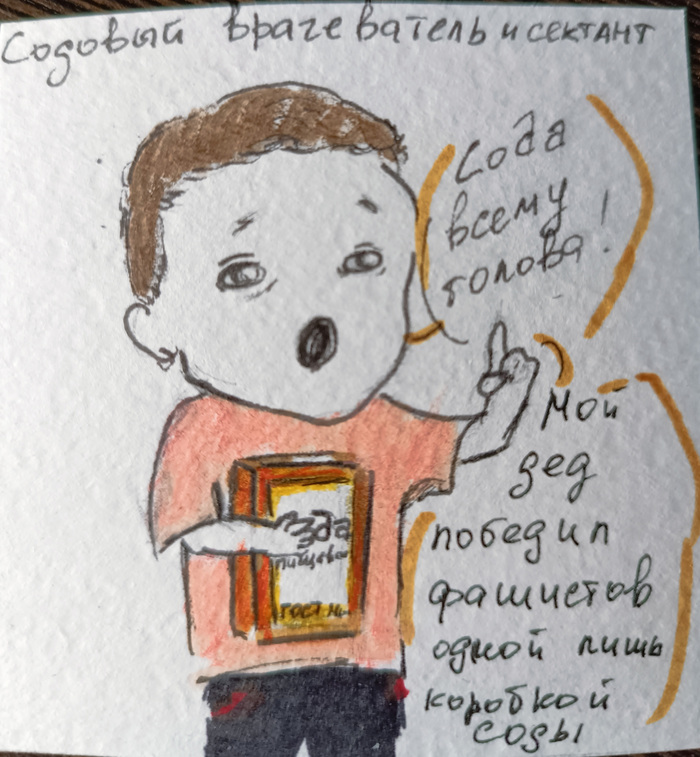 Содовый врачеватель и сектант
Сода
всему
голова!
Мой
дед
победил
фашистов
одной лишь
коробкой
соды
пищевая
ГОСТ